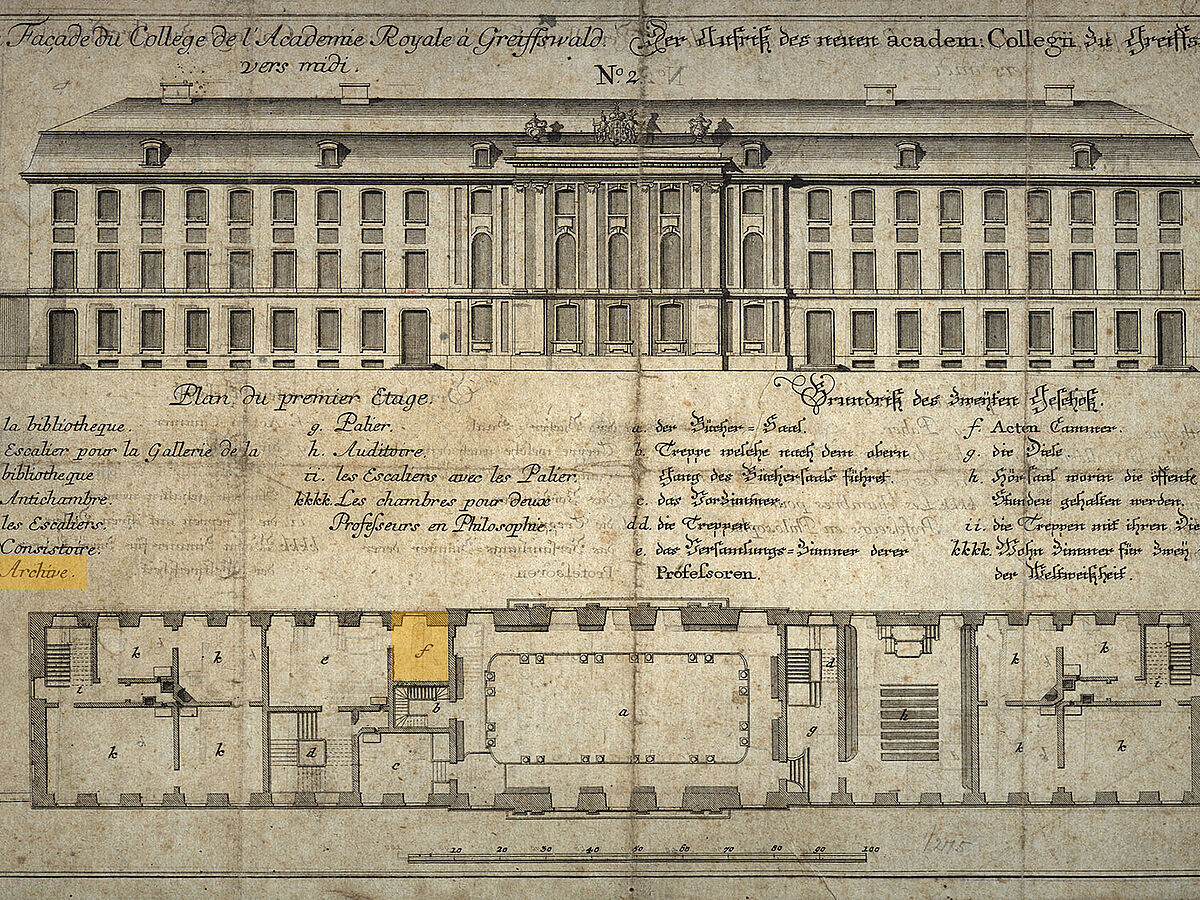 Façade du College de l'Academie Royale à Greiffswald.
vers midi.
Der Aufriß des neuen academ: Collegii du Greiffs
Nº. 2.
Plan du premier Etage.
la bibliotheque.
Escalier pour la Gallerie de la
bibliotheque
Antichambre.
les Escaliers.
Consistoire.
Archive.
g. Palier.
h. Auditoire.
ii. les Escaliers avec les Palier.
kkkk. Les chambres pour deux
Professeurs en Philosophie.
Grundriß des Zweyten Geschoß.
a. der Bücher=Saal.
b. Treppe welche nach dem obern
Gang des Büchersaals führet.
c. das Vorzimmer.
dd. die Treppen.
e. das Versamlungs=Zimmer derer
Professoren.
f. Acten Cammer.
g. die Diele.
h. Hörsaal worin die öffentl
Stunden gehalten werden.
ii. die Treppen mit ihren Die
kkkk. Wohn Zimmer für Zwey
der Weltweißheit.
k k e f d k k i
i b a h
k k d c g k k
10 20 30 40 50 60 70 80 90 100